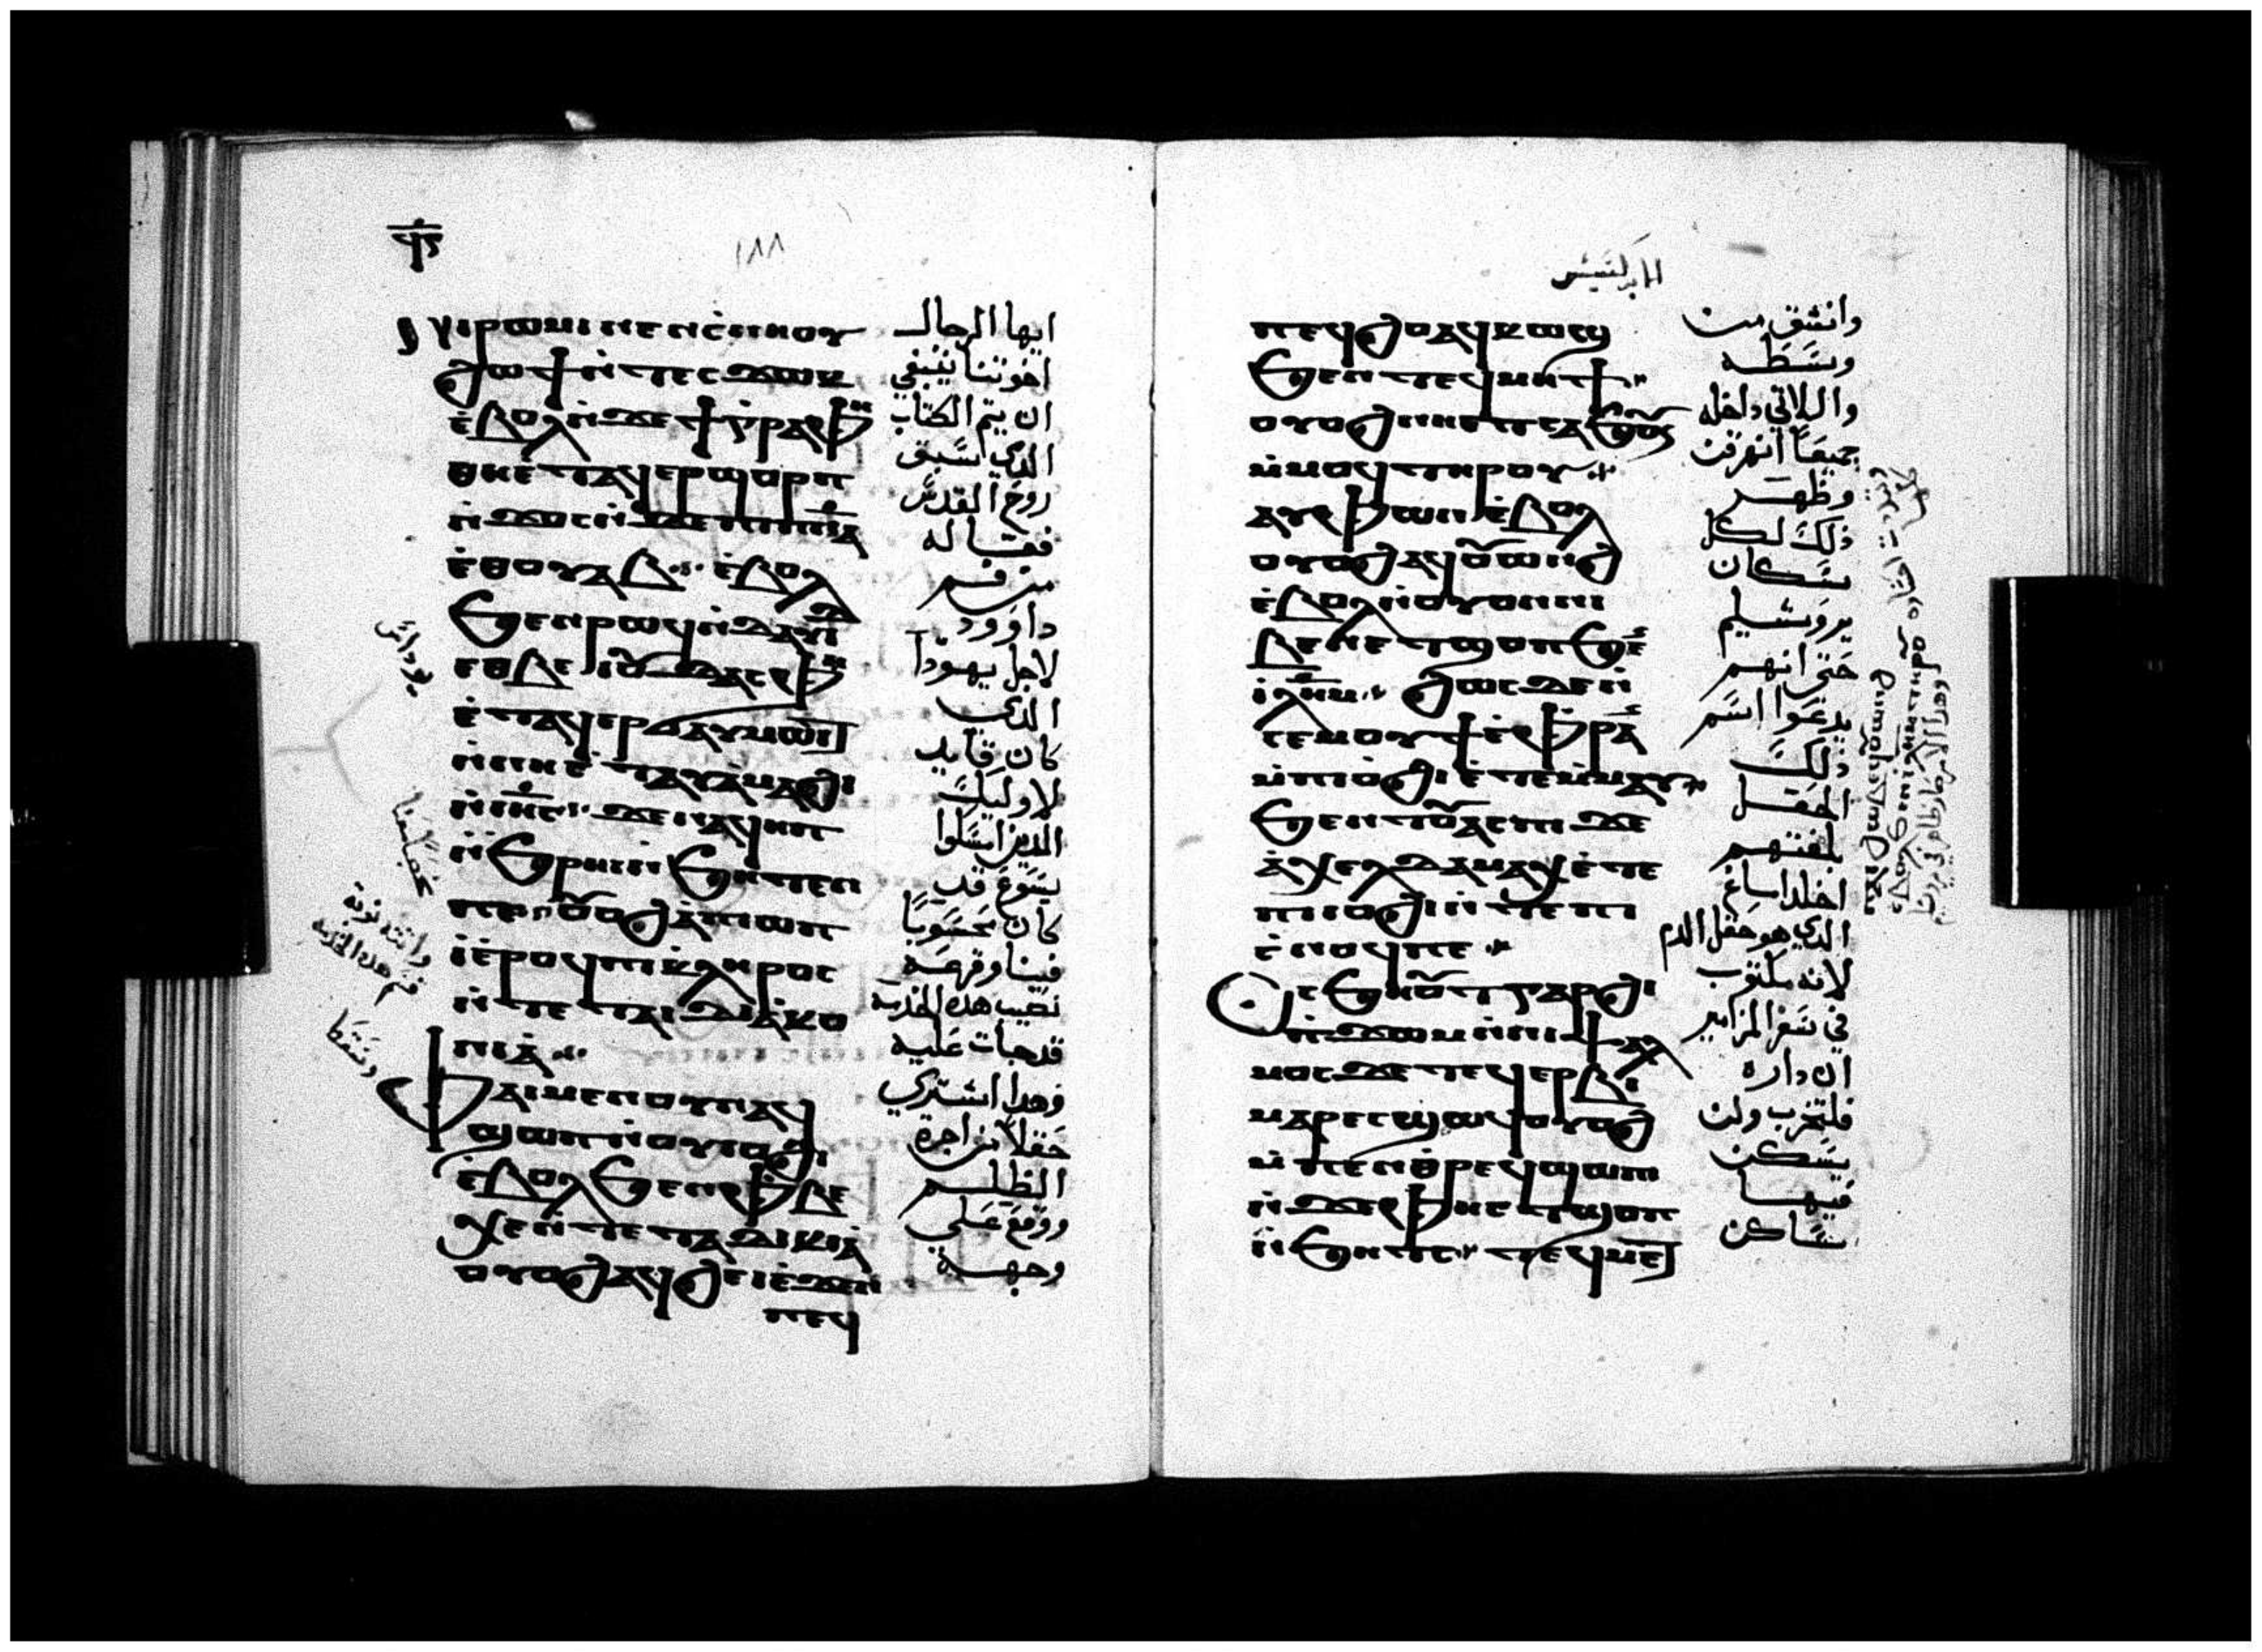 ϥⲋ
١٨٨
ⲛⲓⲣⲱⲙⲓ ⲛⲉⲛⲥ̀ⲛⲏⲟⲩ
ϩⲱϯ ⲛ̀ⲧⲉⲥϫⲱⲕ
ⲉ̀ⲃⲟⲗ ⲛ̀ϫⲉ ϯⲅ̀ⲣⲁⲫⲏ
ⲑⲏⲉ̀ⲧⲁϥⲉⲣϣⲟⲣⲡ
ⲛ̀ϫⲟⲥ ⲛ̀ϫⲉ ⲡⲓⲡ̅ⲛ̅ⲁ̅
ⲉ̀ⲑⲟⲩⲁⲃ ⲉ̀ⲃⲟⲗ
ϧⲉⲛ ⲣⲱϥ ⲛ̀ⲇⲁⲇ
ⲉⲑⲃⲉ ⲓⲟⲩⲇⲁⲥ ⲫⲏ
ⲉ̀ⲧⲁϥⲉⲣϭⲁⲩⲙⲱⲓⲧ
ⲛ̀ⲛⲏⲉ̀ⲧⲁⲩⲁ̀ⲙⲁϩⲓ
ⲛ̀ⲓⲏ̅ⲥ̅ ϫⲉ ⲛⲁϥⲏⲡ
ⲛ̀ϧⲣⲏⲓ ⲛ̀ϧⲏⲧⲉⲛ
ⲡⲉ ⲟⲩⲟϩ ⲁ̀ⲡⲓⲱⲡ
ⲓ̀ ⲉ̀ⲣⲟϥ ⲡⲓⲕ̀ⲗⲏⲣⲟⲥ
ⲛ̀ⲧⲉ ⲧⲁⲓⲇⲓⲁ̀ⲕⲟ
ⲛⲓⲁ̀
Ⲫⲁⲓ ⲙⲉⲛ ⲟⲩⲛ ⲁϥ
ϣⲱⲡ ⲛ̀ⲟⲩⲓⲟϩⲓ
ⲉ̀ⲃⲟⲗ ϧⲉⲛ ⲫⲃⲉ
ⲭⲉ ⲛ̀ⲧⲉ ⲧⲁⲇⲓⲕⲓⲁ̀
ⲟⲩⲟϩ ⲁϥϩⲉⲓ ⲉ̀ϫⲉⲛ
ⲡⲉϥ
ايها الرجال
اخوتنا ينبغي
ان يتم الكتاب
الذي سبق
روح القدس
فقاله
من فم
داوود
لاجل يهودا
الذي
كان قايد
لاوليك
الذين امسكوا
يسوع قد
كان محسوبًا
فينا وقرعة
نصيب هذه الخدمة
قد جات عليه
فهذا اشتري
حقلا من اجرة
الظلم
ووقع علي
وجهه
يوداس
الابركسيس
ⲡⲉϥϩⲟ ⲁϥⲕⲱϣ
ϧⲉⲛ ⲧⲉϥⲙⲏϯ
ⲟⲩⲟϩ ⲛⲏⲉⲧⲥⲁϧⲟⲩⲛ
ⲙ̀ⲙⲟϥ ⲧⲏⲣⲟⲩ
ⲁⲩⲫⲱⲛ ⲉ̀ⲃⲟⲗ
ⲟⲩⲟϩ ⲁϥⲟⲩⲱⲛϩ
ⲉ̀ⲃⲟⲗ ⲛ̀ⲟⲩⲟⲛ ⲛⲓ
ⲃⲉⲛ ⲉⲧϣⲟⲡ ϧⲉⲛ
ⲓ̀ⲗ̅ⲏ̅ⲙ̅ ϩⲱⲥⲇⲉ ⲛ̀
ⲥⲉⲙⲟⲩϯ ⲉ̀ⲫⲣⲁⲛ
ⲙ̀ⲡⲓⲓⲟϩⲓ ⲉ̀ⲧⲉⲙ̀ⲙⲁⲩ
ϧⲉⲛ ⲧⲟⲩⲁⲥⲡⲓ ϫⲉ
ⲁ̀ⲭⲉⲗⲇⲁⲙⲁⲭ ⲉ̀ⲧⲉ
ⲡⲓⲓⲟϩⲓ ⲛ̀ⲧⲉ ⲡⲓ
ⲥ̀ⲛⲟϥ ⲡⲉ
Ⲥⲥϧⲏⲟⲩⲧ ⲅⲁⲣ ϩⲓ
ⲡ̀ϫⲱⲙ ⲛ̀ⲛⲓⲯⲁⲗ
ⲙⲟⲥ ϫⲉ ⲧⲉϥⲉⲣⲃⲓ
ⲙⲁⲣⲉⲥϣⲱϥ ⲟⲩⲟϩ
ⲙ̀ⲡⲉⲛⲑ̀ⲣⲉϥϣⲱⲡⲓ
ⲛ̀ϫⲉ ⲫⲏⲉⲧϣⲟⲡ
ⲛ̀ϧⲏⲧⲥ ⲧⲉϥⲙⲉⲧ
وانشق من
وسطه
واللاتي داخله
جميعًا انهرقت
وظهر
ذلك لكل
سكان
يروشليم
حتى انهم
يدعوا اسم
ذلك
الحقل
بلغتهم
اخلداماخ
الذي هو حقل الدم
لانه مكتوب
في سفر المزامير
ان داره
فلتخرب ولن
يسكن
فيها
ساكن